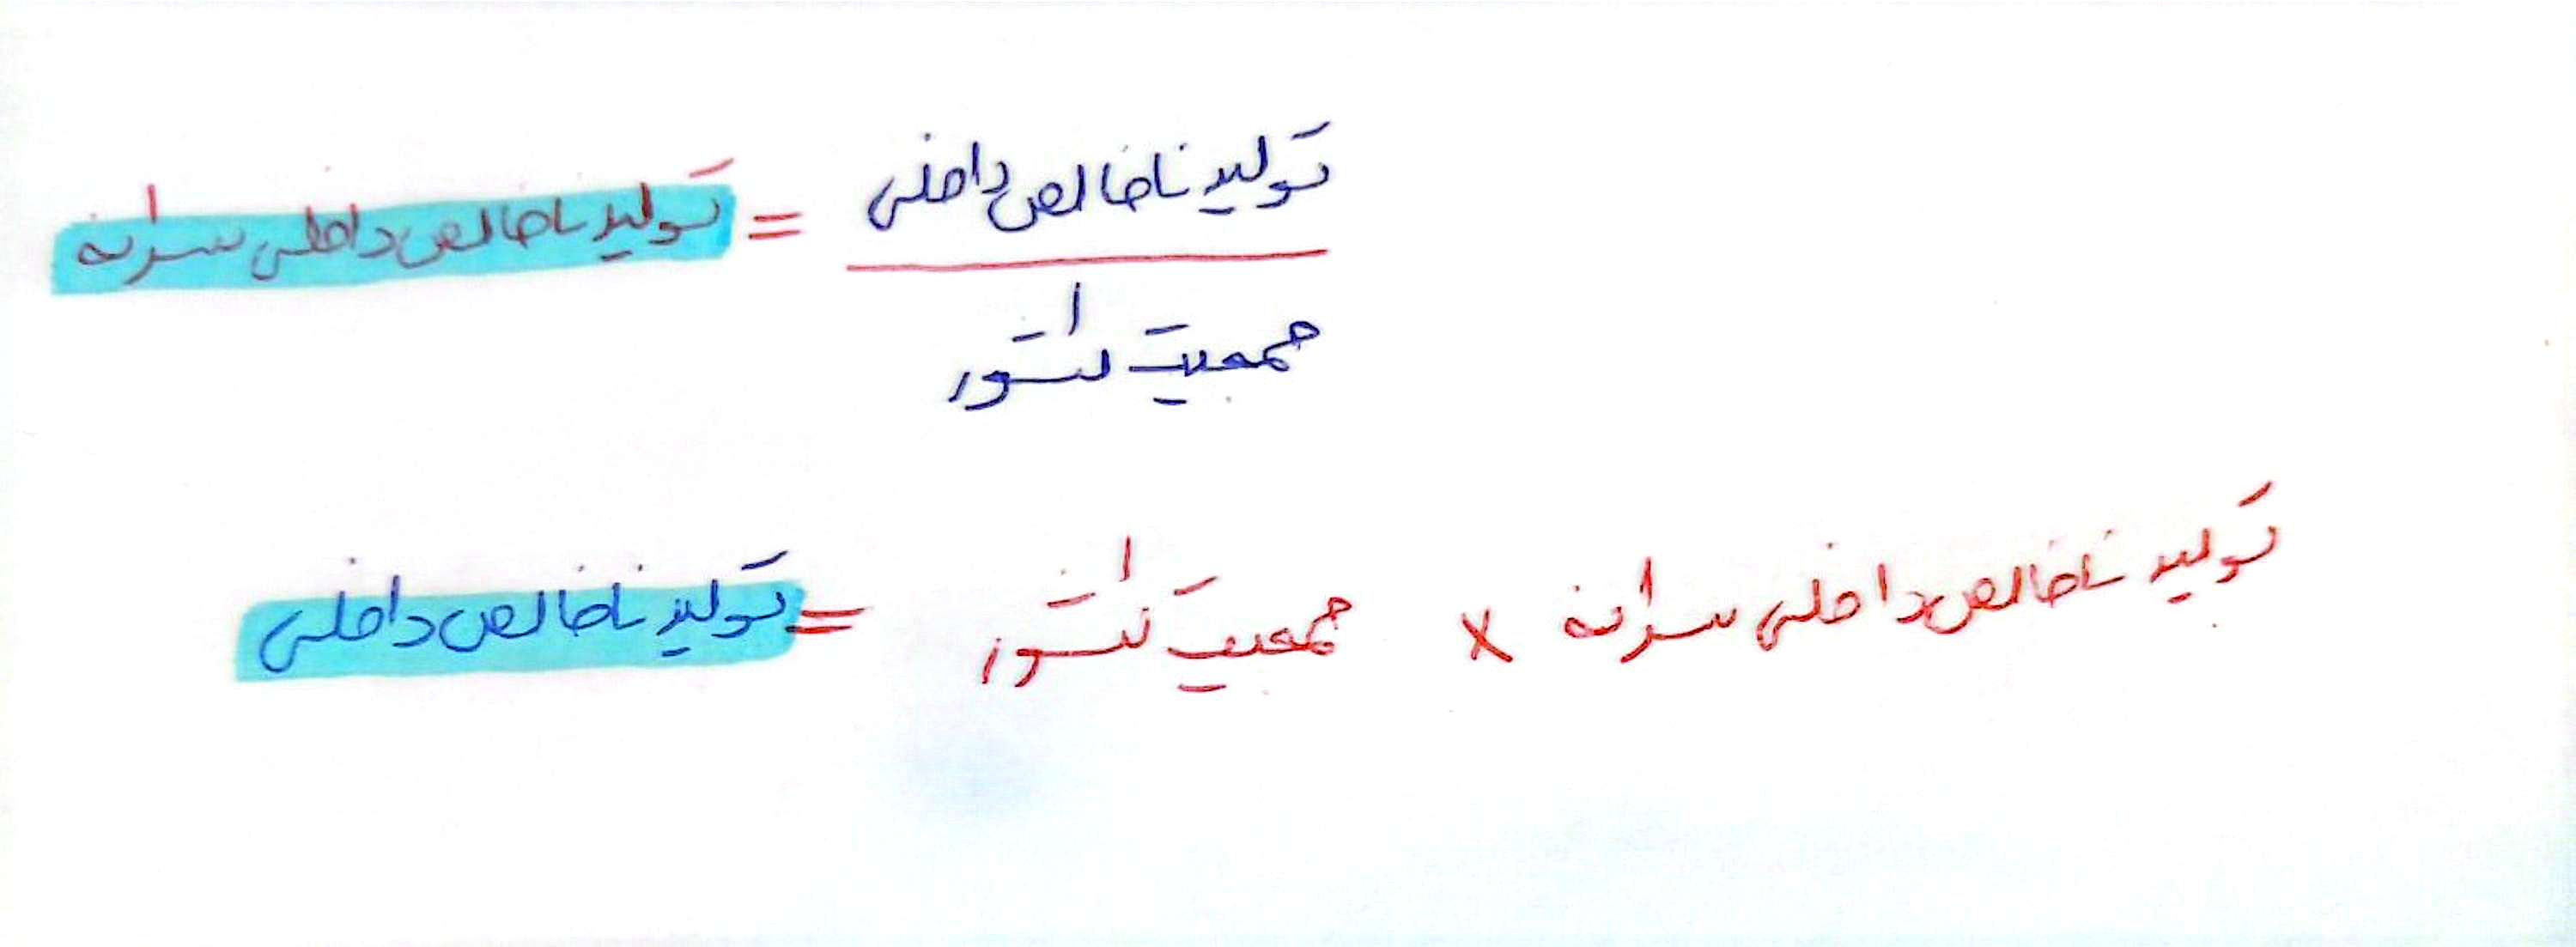 تولید ناخالص داخلی سرانه = تولید ناخالص داخلی
جمعیت کشور
تولید ناخالص داخلی = جمعیت کشور × تولید ناخالص داخلی سرانه